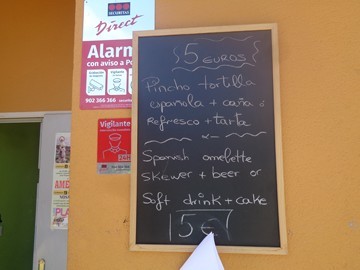 SECURITAS
Direct
Alarm
con aviso a Po
902 366 266
Vigilante
24H
PLA
5 EUROS
Pincho tortilla
española + caña ó
Refresco + tarta
Spanish omelette
skiewer + beer or
Soft drink + cake
5 €